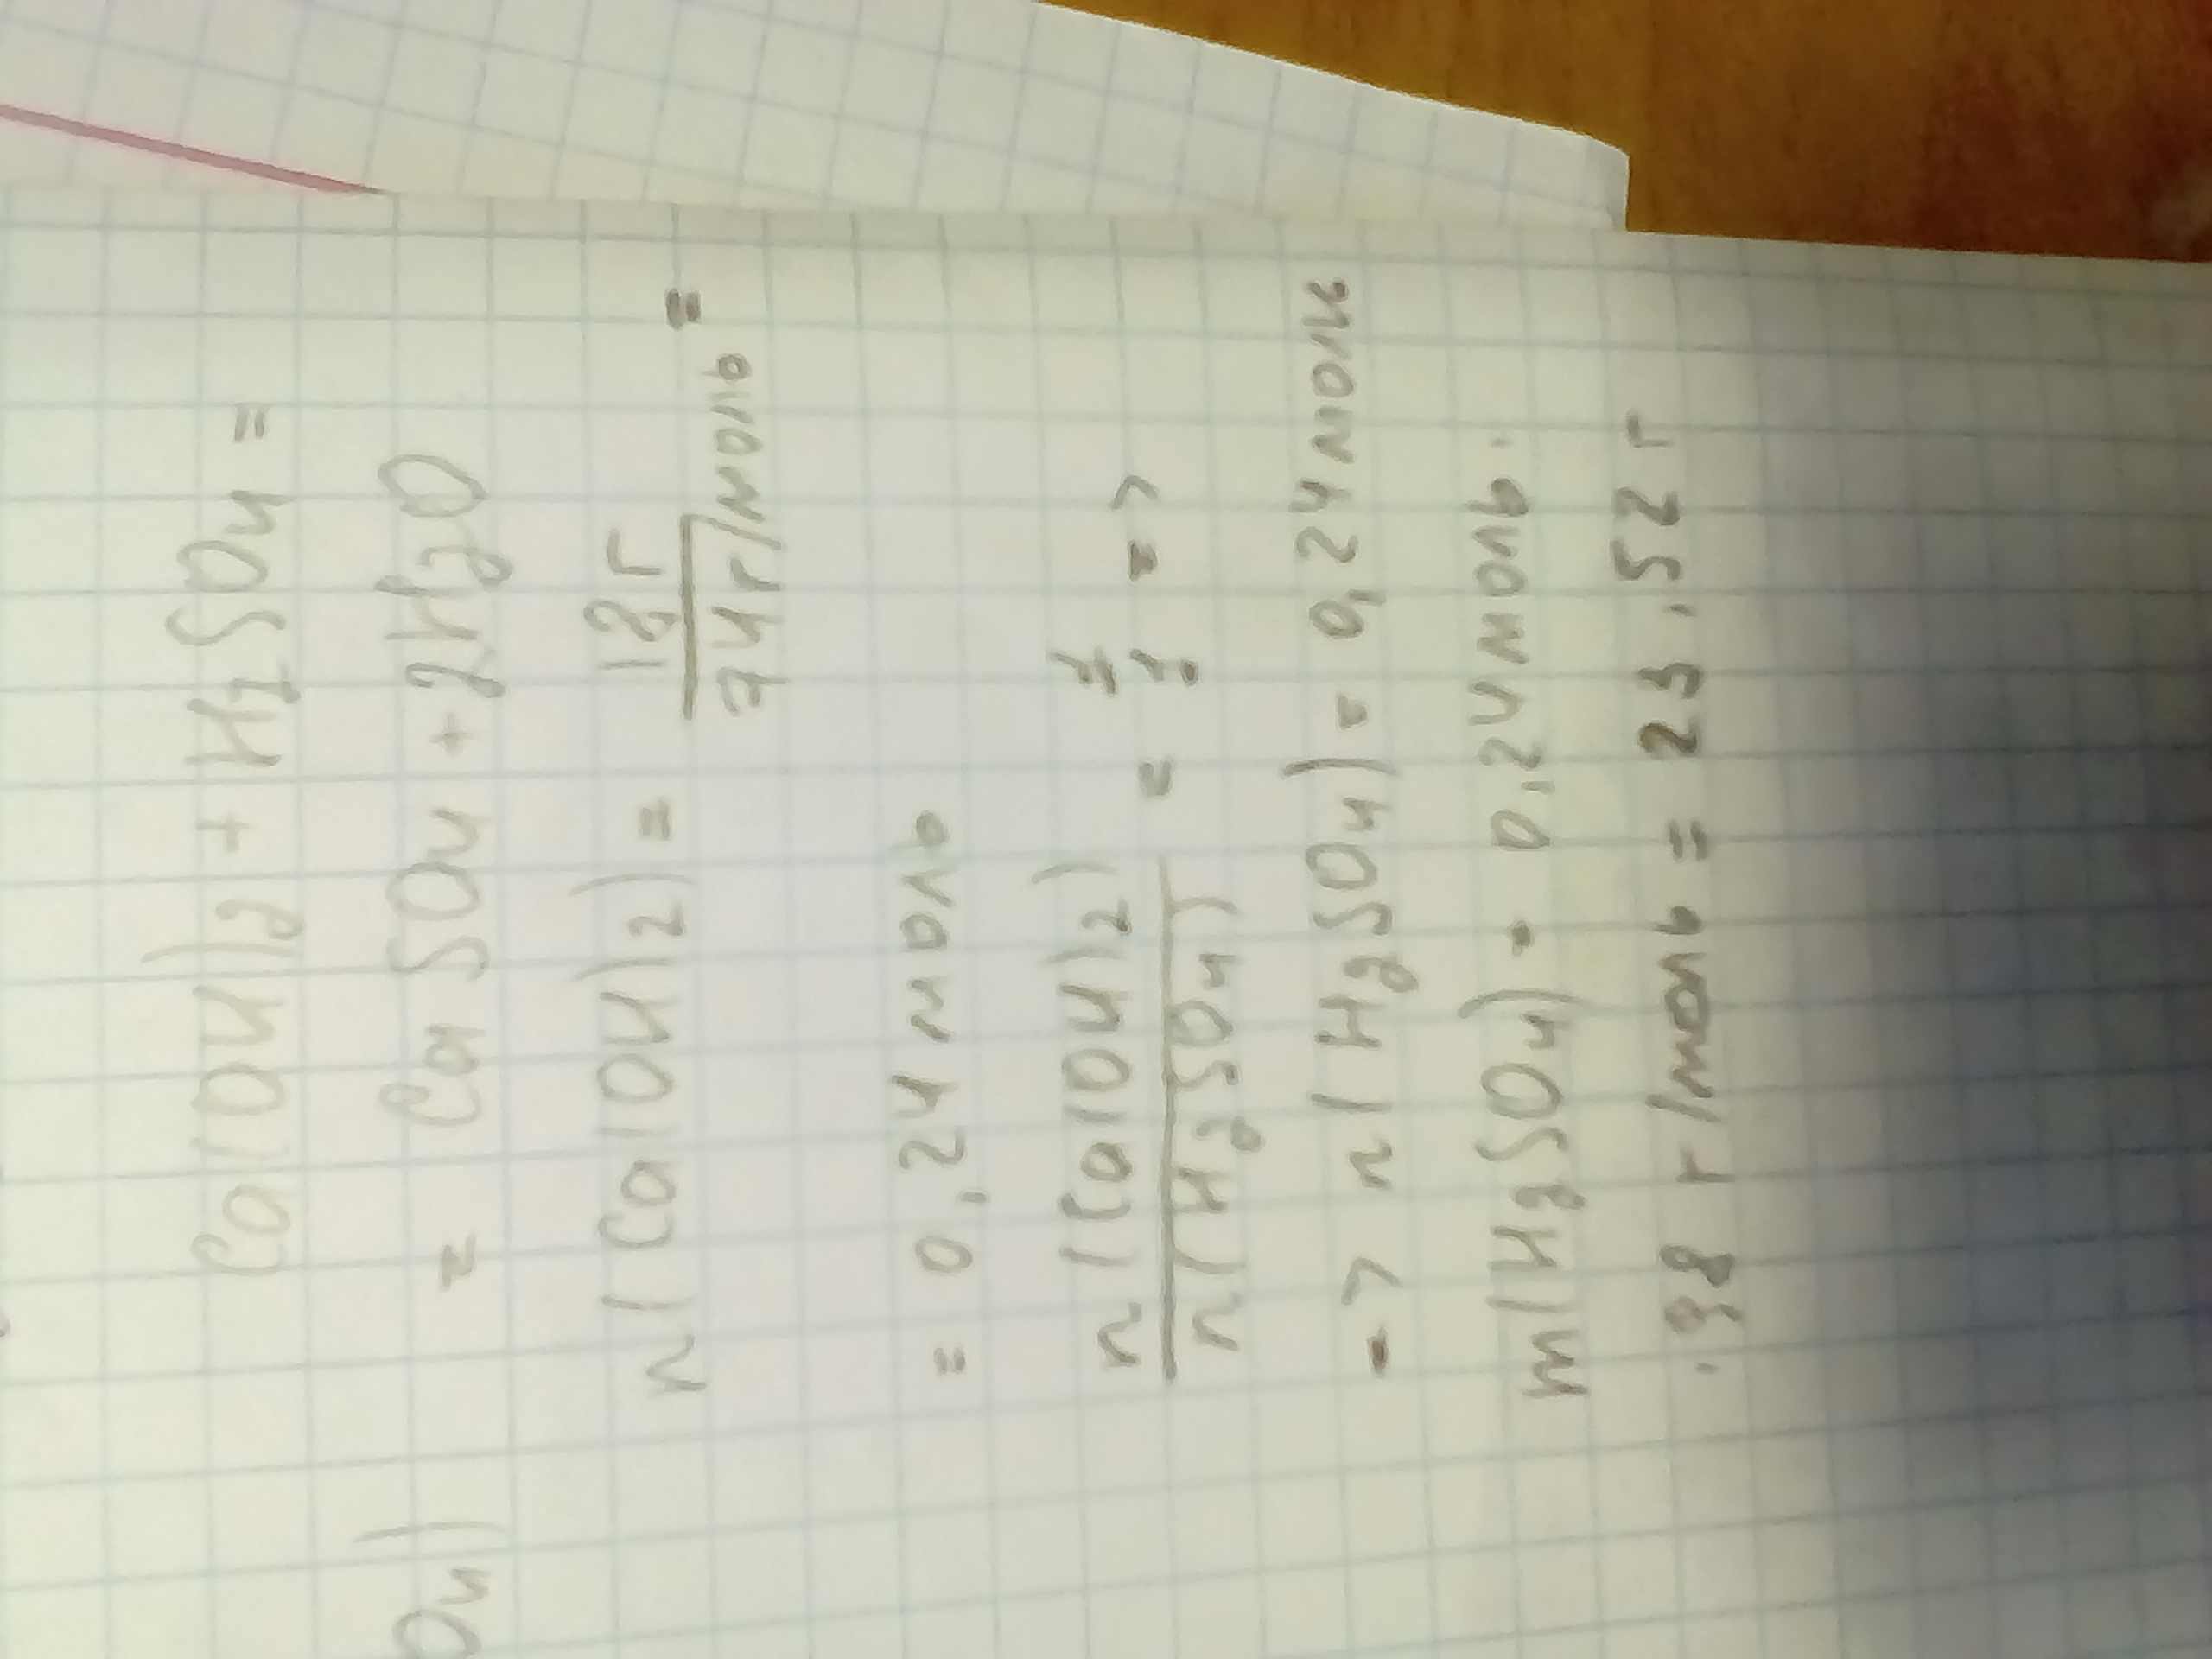 Ca(OH)2 + H2SO4 =
= CaSO4 + 2H2O
n(Ca(OH)2) = 18г / 74г/моль =
= 0,24 моль
n(Ca(OH)2) / n(H2SO4) = 1 / 1 =>
=> n(H2SO4) = 0,24 моль
m(H2SO4) = 0,24 моль ·
· 98 г/моль = 23,52 г
O4)